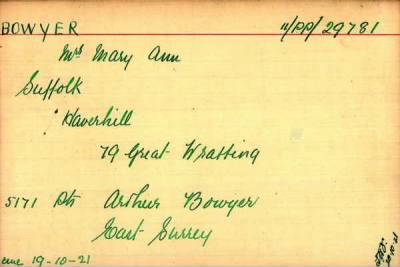 BOWYER 11/PP/29781
Mrs Mary Ann
Suffolk
Haverhill
79 Great Wratting
5171 Pte Arthur Bowyer
East Surrey
19-10-21